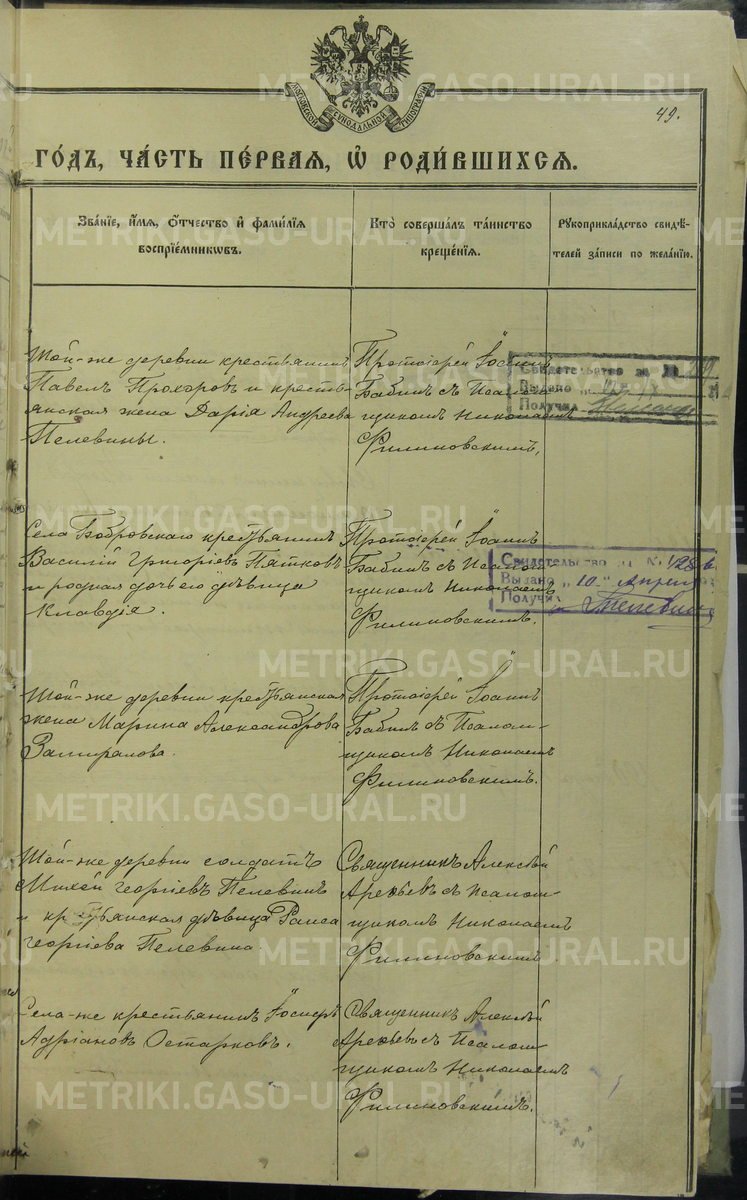 49.
МОСКОВСКОЙ СѴНОДАЛЬНОЙ ТИПОГРАФІИ
ГО́ДЪ, ЧА́СТЬ ПЕ́РВАѦ, Ѡ҆ РОДИ́ВШИХСѦ.
Зва́нїе, и҆́мѧ, ѻ҆́тчество и҆ фами́лїѧ
воспрїе́мникѡвъ.
Кто̀ соверша́лъ та́инство
креще́нїѧ.
Рꙋкоприкла́дство свидѣ́-
телей за́писи по жела́нїю.
Той-же деревни крестьянинъ
Павелъ Прохоровъ и кресть-
янская жена Дарія Андреева
Пелевины.
Протоіерей Іоаннъ
Бабинъ съ Псалом-
щикомъ Николаемъ
Филиновскимъ.
Свидетельство за №
Выдано
Получил
Села Бобровскаго крестьянинъ
Василій Григоріевъ Пятковъ
и родная дочь его дѣвица
Клавдія.
Протоіерей Іоаннъ
Бабинъ съ Псалом-
щикомъ Николаемъ
Филиновскимъ.
Свидетельство за №
Выдано „10" апрел
Получил Пелевин
Той-же деревни крестьянская
жена Марина Александрова
Замиралова.
Протоіерей Іоаннъ
Бабинъ съ Псалом-
щикомъ Николаемъ
Филиновскимъ.
Той-же деревни солдатъ
Михей Георгіевъ Пелевинъ
и крестьянская дѣвица Раиса
Георгіева Пелевина.
Священникъ Алексѣй
Арефьевъ съ Псалом-
щикомъ Николаемъ
Филиновскимъ.
Села-же крестьянинъ Іосифъ
Адріановъ Остарковъ.
Священникъ Алексѣй
Арефьевъ съ Псалом-
щикомъ Николаемъ
Филиновскимъ.
METRIKI.GASO-URAL.RU